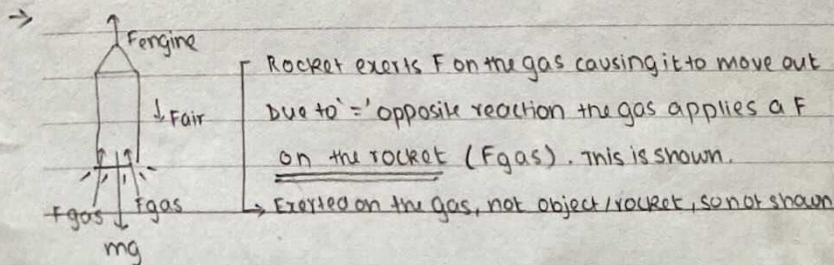 →
Fengine
Rocket exerts F on the gas causing it to move out
↓ Fair
Due to '=' opposite reaction the gas applies a F
on the rocket (Fgas). This is shown.
Fgas Fgas
→ Exerted on the gas, not object/rocket, so not shown
mg